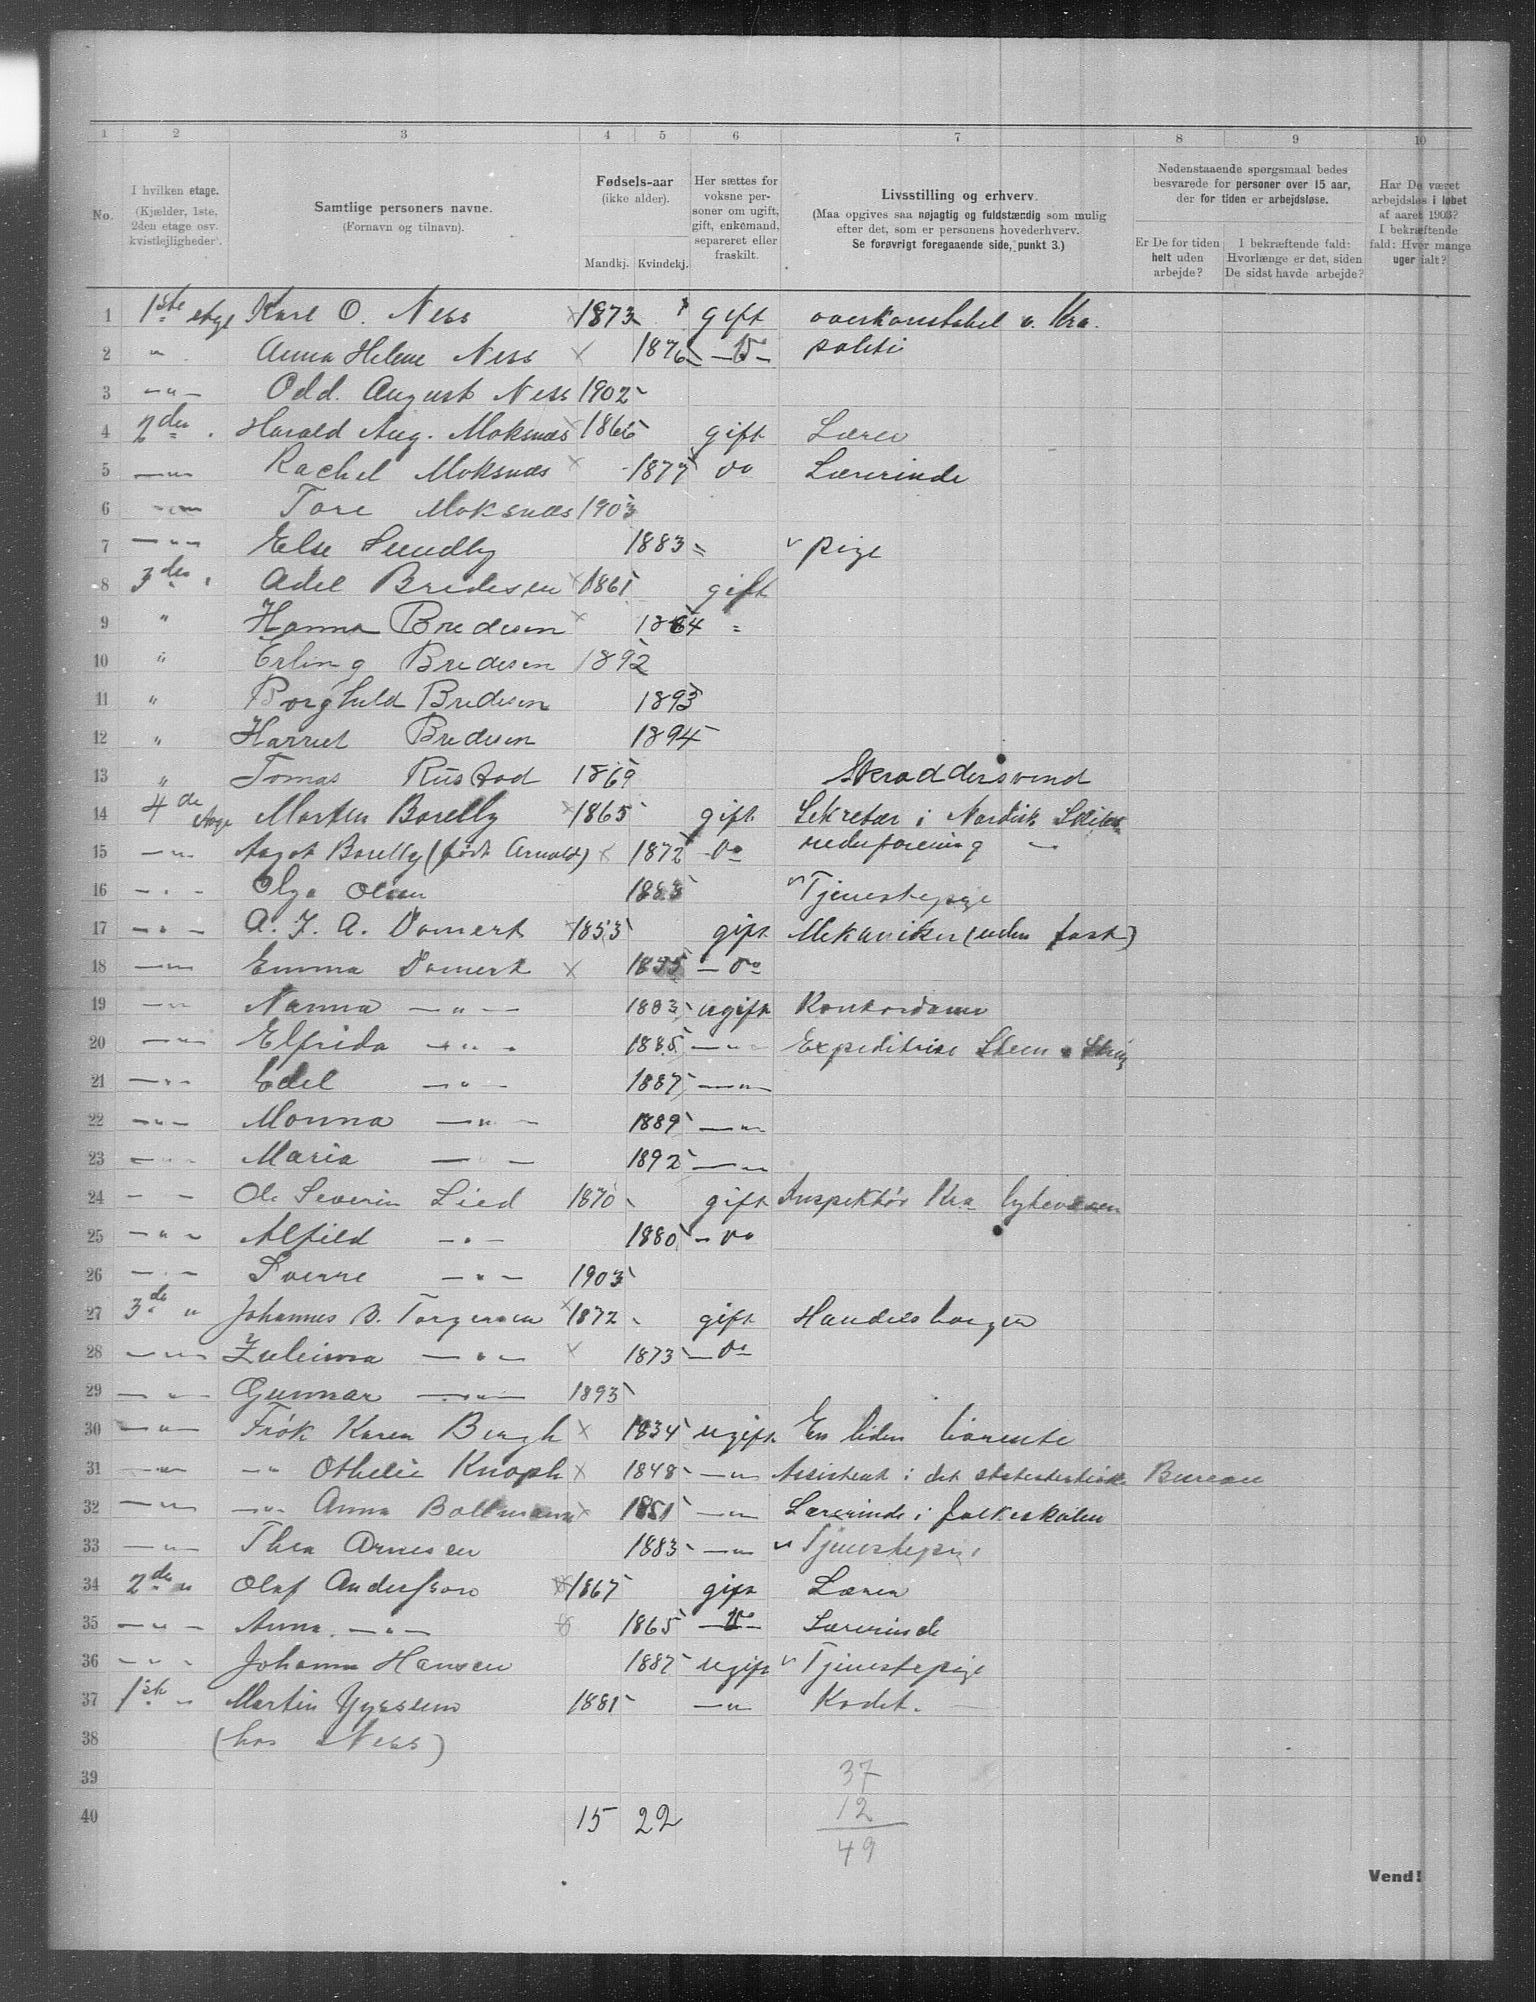 1 2 3 4 5 6 7 8 9 10
No.
I hvilken etage.
(Kjælder, 1ste,
2den etage osv.
kvistlejligheder).
Samtlige personers navne.
(Fornavn og tilnavn).
Fødsels-aar
(ikke alder).
Mandkj. Kvindekj.
Her sættes for
voksne per-
soner om ugift,
gift, enkemand,
separeret eller
fraskilt.
Livsstilling og erhverv.
(Maa opgives saa nøjagtig og fuldstændig som mulig
efter det, som er personens hovederhverv.
Se forøvrigt foregaaende side, punkt 3.)
Nedenstaaende spørgsmaal bedes
besvarede for personer over 15 aar,
der for tiden er arbejdsløse.
Er De for tiden
helt uden
arbejde?
I bekræftende fald:
Hvorlænge er det, siden
De sidst havde arbejde?
Har De været
arbejdsløs i løbet
af aaret 1903?
I bekræftende
fald: Hvor mange
uger ialt?
1 1ste etage Karl O. Ness 1873 gift overkonstabel v. Kra.
2 " Anna Helene Ness 1876 — do — politi
3 — " — Odd. August Ness 1902
4 2den Harald Aug. Moksnæs 1866 gift Lærer
5 — " — Rachel Moksnæs 1877 do Lærerinde
6 — " — Tore Moksnæs 1903
7 — " — Else Sundby 1883 = pige
8 3den Adel Bredesen 1861 gift
9 " Hanna Bredesen 1864 =
10 " Erling Bredesen 1892
11 " Borghild Bredesen 1893
12 " Harriet Bredesen 1894
13 " Tomas Rustad 1869 Skræddersvend
14 4de etage Morten Borelly 1865 gift Sekretær i Nordisk
15 — " — Aagot Borelly (født Arnold) 1872 do
16 — " — Olga Olsen 1883 Tjenestepige
17 — " — A. J. A. Domert 1853 gift Mekaniker (uden fast)
18 — " — Emma Domert 1855 — do
19 — " — Nanna — " — 1883 ugift Kontordame
20 — " — Elfrida — " — 1885 — " — Expeditrise Steen & Strøm
21 — " — Edel — " — 1887 — " —
22 — " — Monna — " — 1889 — " —
23 — " — Maria — " — 1892 — " —
24 — — Ole Severin Lied 1870 gift Inspektør Kra
25 — " — Alfild — " — 1880 — do
26 — " — Sverre — " — 1903
27 3de " Johannes B. Torgersen 1872 gift Handelsborger
28 — " — Zuleima — " — 1873 — do
29 — " — Gunnar — " — 1893
30 — " — Frøk Karen Bergh 1834 ugift En liden livrente
31 — " — — " — Othelie Knoph 1848 — " — Assistent i det statestestiske Bureau
32 — " — — " — Anna Bollmann 1851 — " — Lærerinde i folkeskolen
33 — " — Thea Arnesen 1883 — " — Tjenestepige
34 2de " Olaf Anderssen 1867 gift Lærer
35 — " — Anna — " — 1865 — do — Lærerinde
36 — " — Johanna Hansen 1887 ugift Tjenestepige
37 1ste " Martin 1881 — " — Kadet.
38 (hos Ness)
39 37
40 15 22 12
49
Vend!